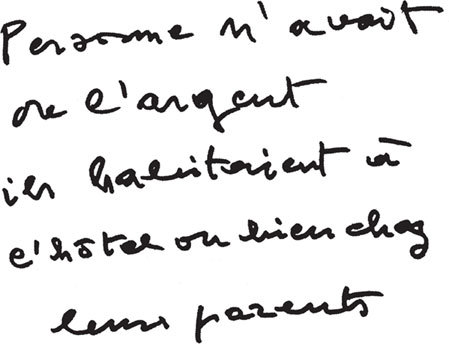 Personne n'avait
de l'argent
ils habitaient à
l'hôtel ou bien chez
leurs parents